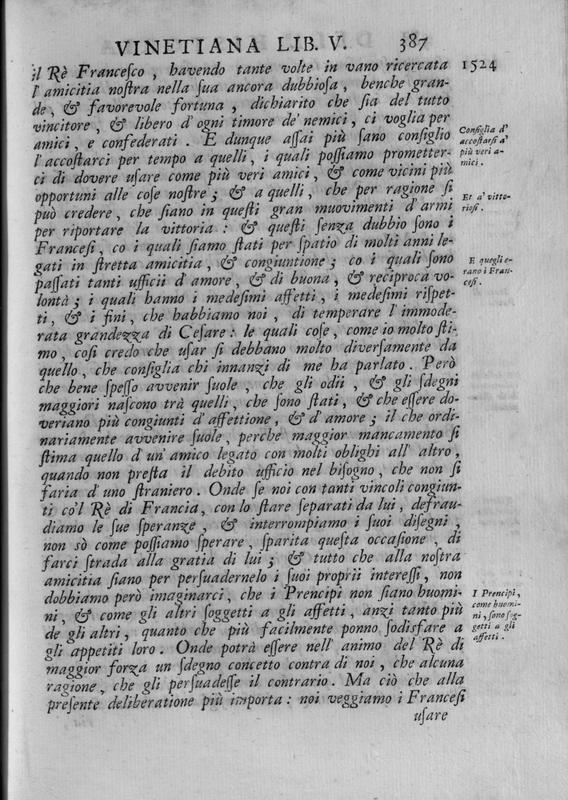 VINETIANA LIB. V. 387
1524
il Rè Franceſco, havendo tante volte in vano ricercata
l'amicitia noſtra nella ſua ancora dubbioſa, benche gran-
de, & favorevole fortuna, dichiarito che ſia del tutto
vincitore, & libero d'ogni timore de' nemici, ci voglia per
amici, e confederati. E dunque aſſai più ſano conſiglio
l'accoſtarci per tempo a quelli, i quali poſſiamo prometter-
ci di dovere uſare come più veri amici, & come vicini più
opportuni alle coſe noſtre; & a quelli, che per ragione ſi
può credere, che ſiano in queſti gran muovimenti d'armi
per riportare la vittoria: & queſti ſenza dubbio ſono i
Franceſi, co i quali ſiamo ſtati per ſpatio di molti anni le-
gati in ſtretta amicitia, & congiuntione; co i quali ſono
paſſati tanti ufficii d'amore, & di buona, & reciproca vo-
lontà; i quali hanno i medeſimi affetti, i medeſimi riſpet-
ti, & i fini, che habbiamo noi, di temperare l'immode-
rata grandezza di Ceſare: le quali coſe, come io molto ſti-
mo, coſi credo che uſar ſi debbano molto diverſamente da
quello, che conſiglia chi innanzi di me ha parlato. Però
che bene ſpeſſo avvenir ſuole, che gli odii, & gli ſdegni
maggiori naſcono trà quelli, che ſono ſtati, & che eſſere do-
veriano più congiunti d'affettione, & d'amore; il che ordi-
nariamente avvenire ſuole, perche maggior mancamento ſi
ſtima quello d'un' amico legato con molti oblighi all' altro,
quando non preſta il debito ufficio nel biſogno, che non ſi
faria d'uno ſtraniero. Onde ſe noi con tanti vincoli congiun-
ti co'l Rè di Francia, con lo ſtare ſeparati da lui, defrau-
diamo le ſue ſperanze, & interrompiamo i ſuoi diſegni,
non sò come poſſiamo ſperare, ſparita queſta occaſione, di
farci ſtrada alla gratia di lui; & tutto che alla noſtra
amicitia ſiano per perſuadernelo i ſuoi proprii intereſſi, non
dobbiamo però imaginarci, che i Prencipi non ſiano huomi-
ni, & come gli altri ſoggetti a gli affetti, anzi tanto più
de gli altri, quanto che più facilmente ponno ſodisfare a
gli appetiti loro. Onde potrà eſſere nell' animo del Rè di
maggior forza un ſdegno concetto contra di noi, che alcuna
ragione, che gli perſuadeſſe il contrario. Ma ciò che alla
preſente deliberatione più importa: noi veggiamo i Franceſi
uſare
Conſiglia d'
accoſtarſi a'
più veri a-
mici.
Et a' vitto-
rioſi.
E quegli e-
rano i Fran-
ceſi.
I Prencipi,
come huomi-
ni, ſono ſog-
getti a gli
affetti.